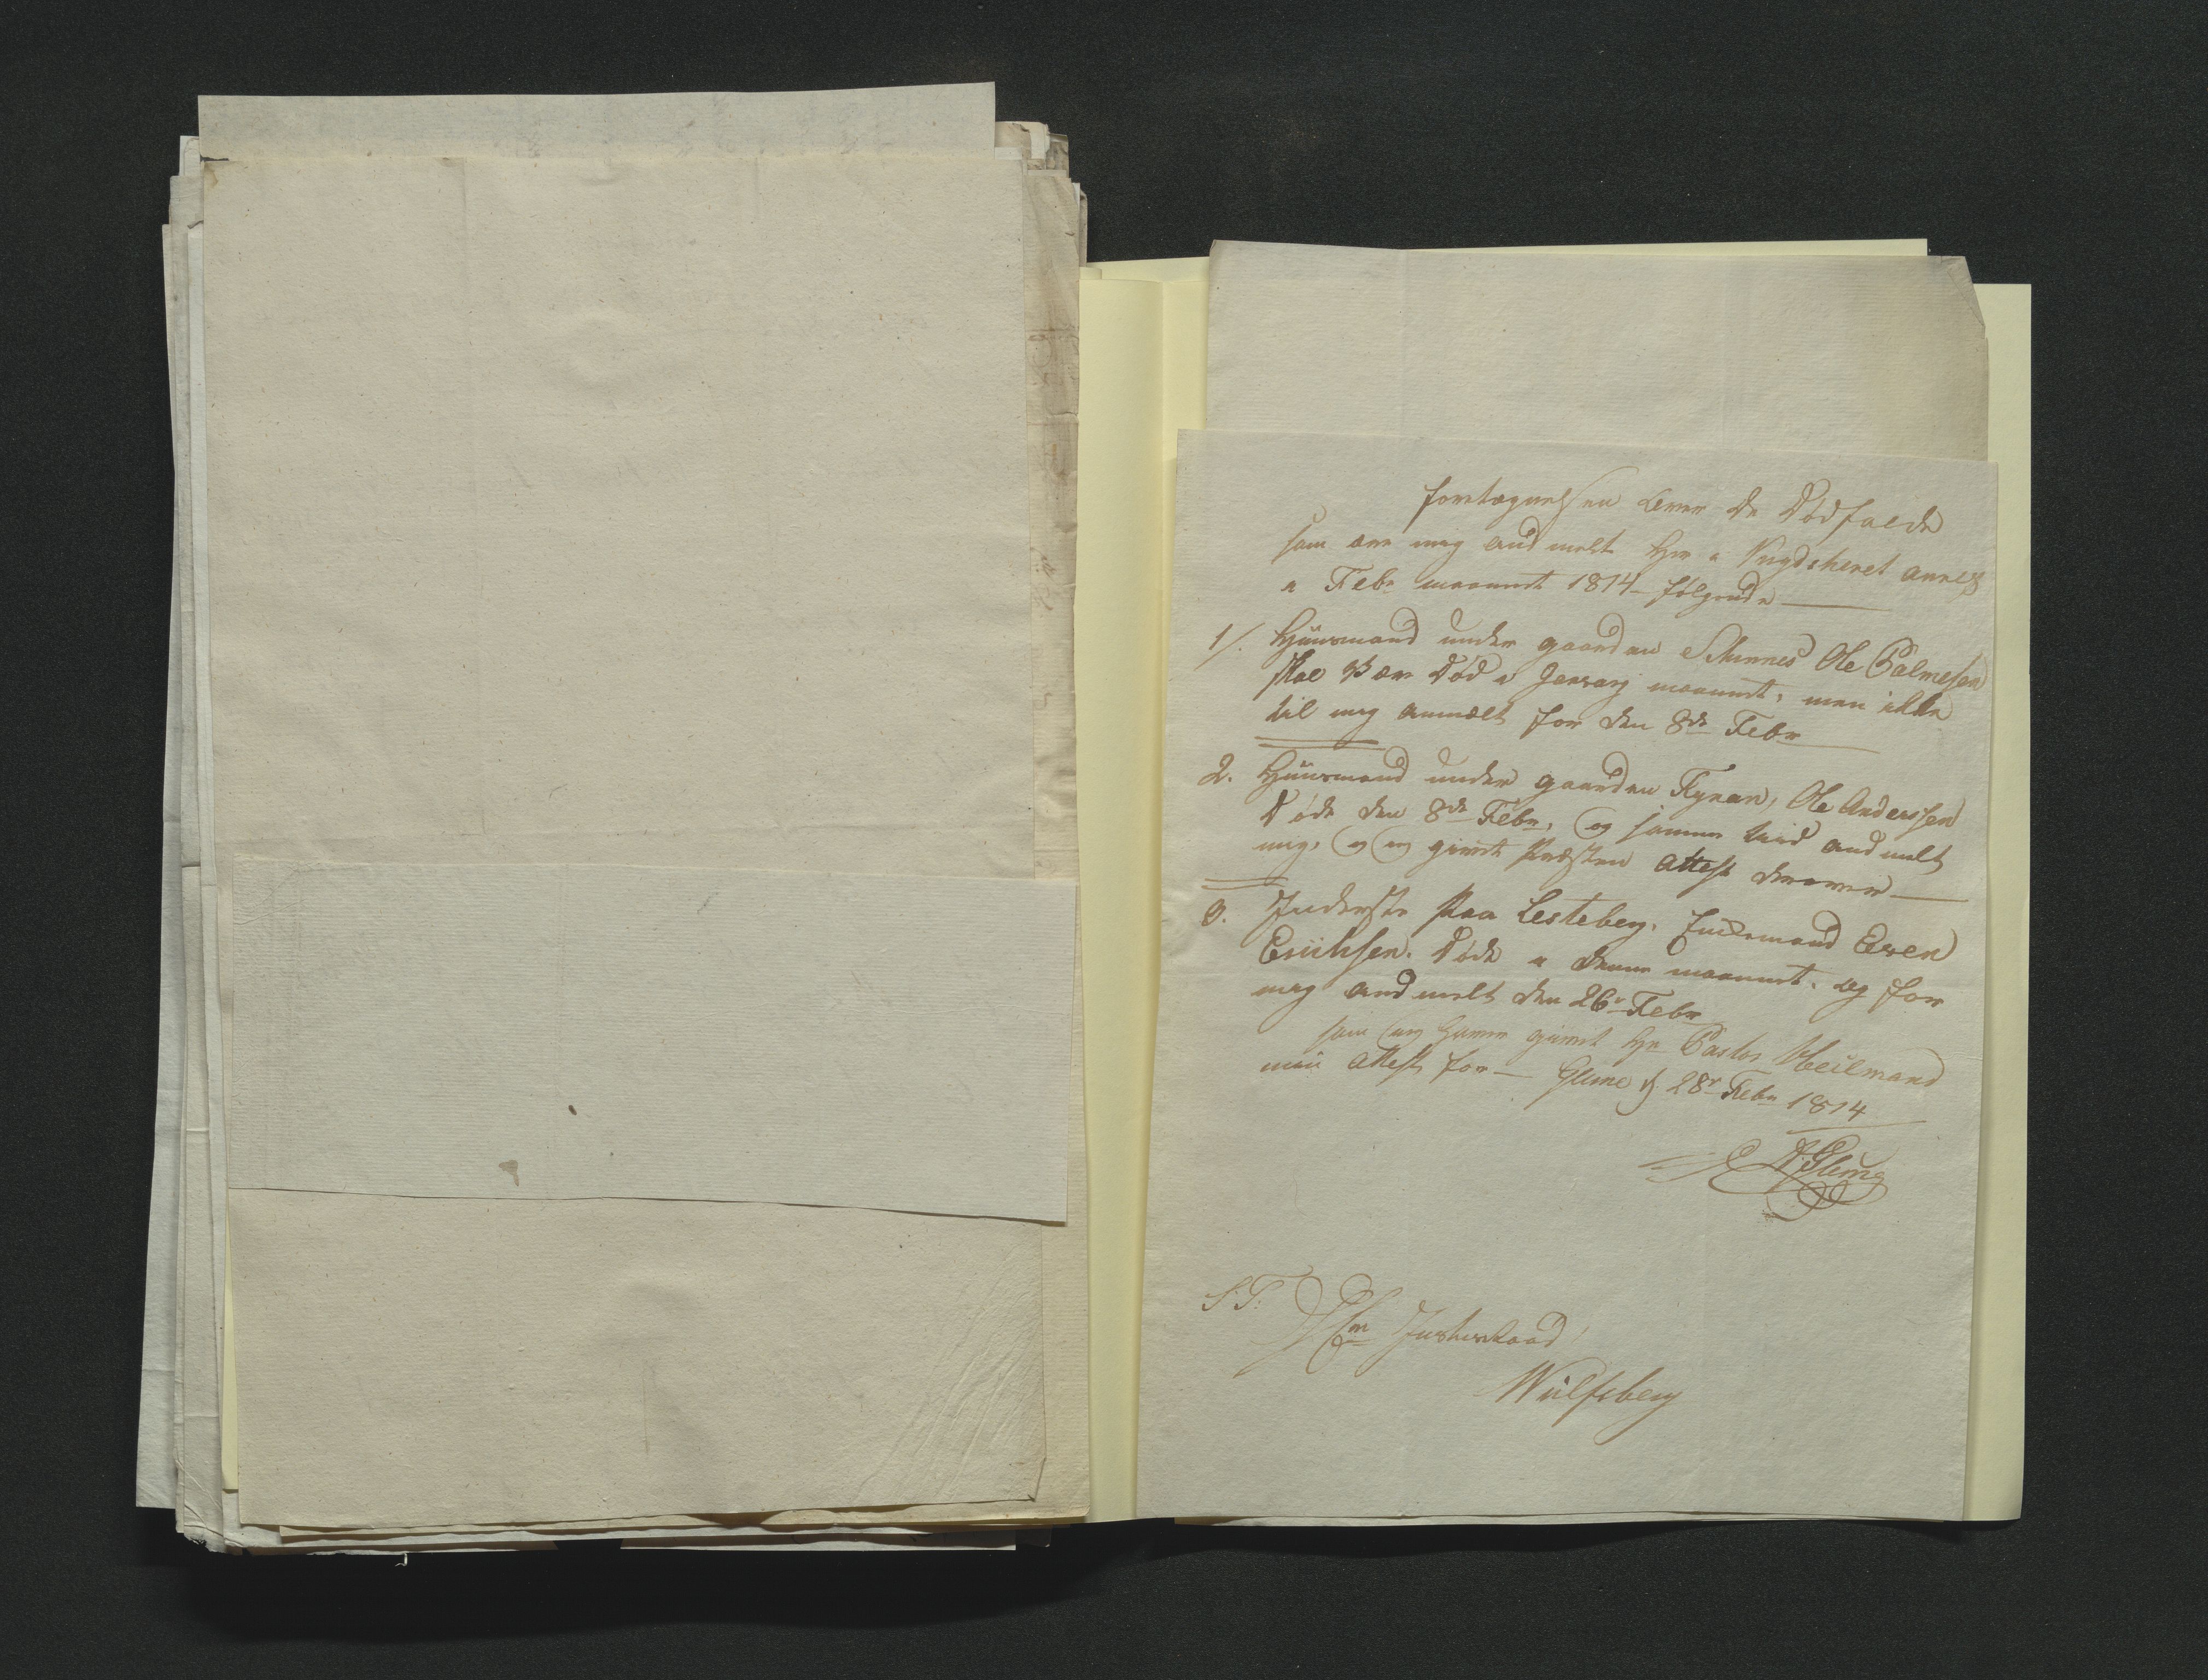 fortægnelsen over de Dødfalde
som ere mig and melt her i annex
i Febr maanedt 1814 følgende
1/. Huusmand under gaarden Skinnes Ole Palmesen
skal være død i Januarj maanedt, men ikke
til mig anmælt for den 8de Febr
2. Huusmand under gaarden Ole Anderssen
Døde den 8de Febr, og samme tiid and melt
mig, og jeg givet Præsten attest derover
3. Inderste paa Lesteberg, Enkemand Even
Erichsen. Døde i denne maanedt, og for
mig and melt den 26r Febr
som jeg haver givet Hr Pastor Heilmand
min attest for — d 28r Febr 1814
S:T:
Hr Justisraad
Wülfsberg